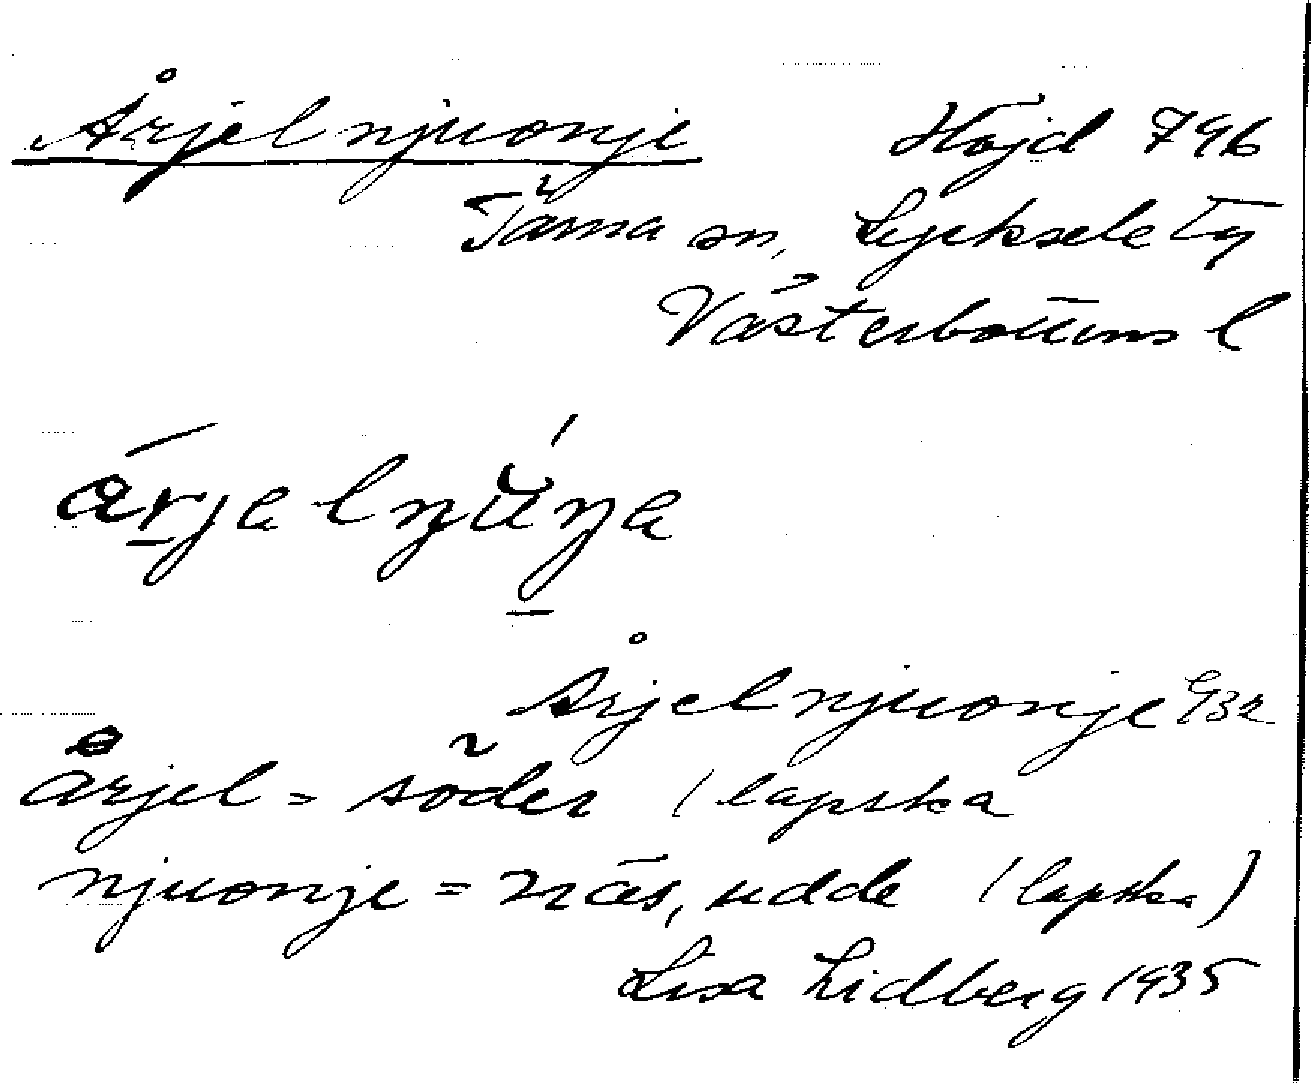 Årjelnjuonje Höjd 796
Tärna sn, Lycksele tg
Västerbottens l
Årjelnjuonje 932
årjel = söder ( lapska
njuonje = näs, udde ( lapska )
Lisa Lidberg 1935